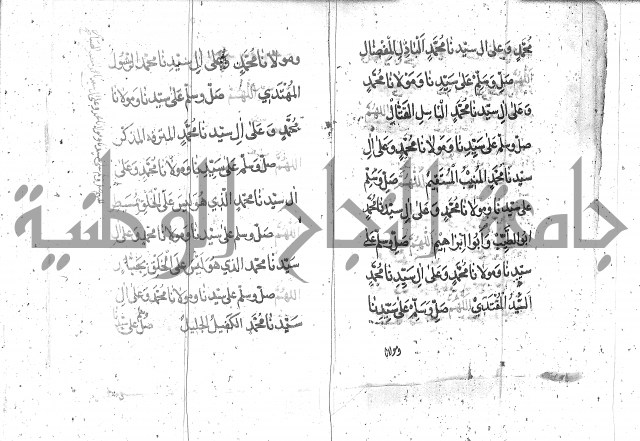 محمد وعلى ال سيدنا محمد الباذل المفضال
اللهم صل وسلم على سيدنا ومولانا محمد
وعلى ال سيدنا محمد الباسل القتال اللهم
صل وسلم على سيدنا ومولانا محمد وعلى ال
سيدنا محمد المنيب المستقيم اللهم صل وسلم
على سيدنا ومولانا محمد وعلى ال سيدنا محمد
ابو الطيب وابو ابراهيم اللهم صل وسلم على
سيدنا ومولانا محمد وعلى ال سيدنا محمد
السيد المقتدي اللهم صل وسلم على سيدنا
ومولانا
ومولانا محمد وعلى ال سيدنا محمد الرسول
المهتدي اللهم صل وسلم على سيدنا ومولانا
محمد وعلى ال سيدنا محمد
اللهم صل وسلم على سيدنا ومولانا محمد وعلى
ال سيدنا محمد الذي هو ليس على الخلق بمسيطر
اللهم صل وسلم على سيدنا ومولانا محمد وعلى ال
سيدنا محمد الذي هو ليس على الخلق
اللهم صل وسلم على سيدنا ومولانا محمد وعلى ال
سيدنا محمد الكفيل الجليل صل وسلم على سيدنا
جامعة النجاح الوطنية